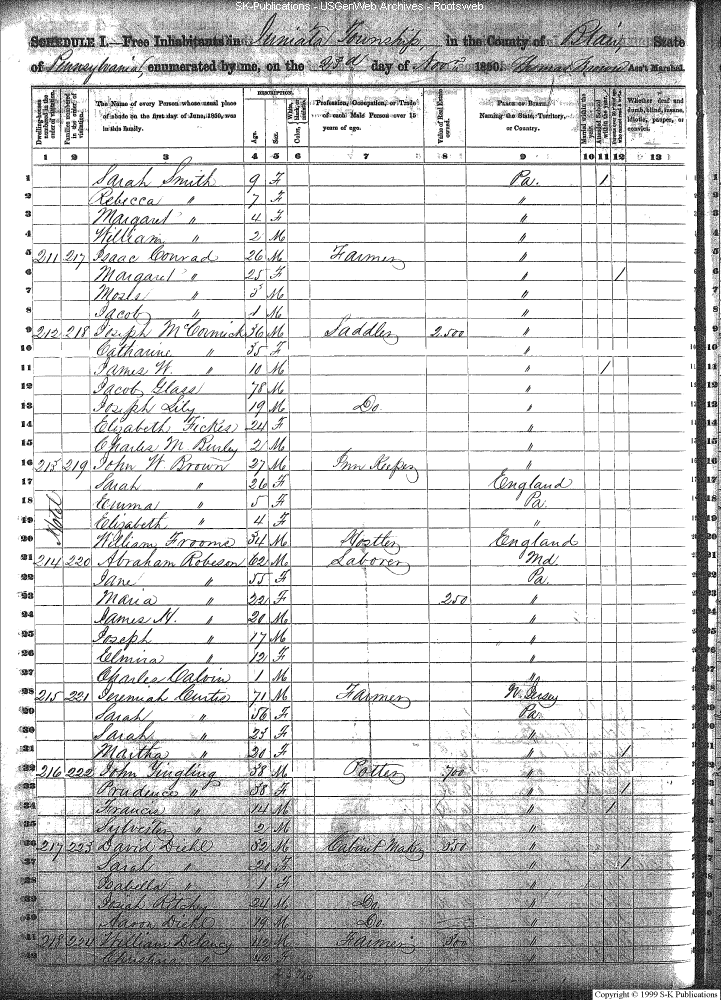 SK-Publications - USGenWeb Archives - Rootsweb
SCHEDULE I.—Free Inhabitants in Juniata Township, in the County of Blair, State
of Pennsylvania, enumerated by me, on the 23d day of Nov. 1850. Ass't Marshal.
Dwelling-houses numbered in the order of visitation.
Families numbered in the order of visitation.
The Name of every Person whose usual place of abode on the first day of June, 1850, was in this family.
DESCRIPTION.
Age.
Sex.
White, black, or mulatto.
Color,
Profession, Occupation, or Trade of each Male Person over 15 years of age.
Value of Real Estate owned.
PLACE OF BIRTH. Naming the State, Territory, or Country.
Married within the year.
Attended School within the year.
Whether deaf and dumb, blind, insane, idiotic, pauper, or convict.
1 2 3 4 5 6 7 8 9 10 11 12 13
1 Sarah Smith 9 F Pa. 1
2 Rebecca " 7 F "
3 Margaret " 4 F "
4 William " 2 M "
5 211 217 Isaac Conrad 26 M Farmer "
6 Margaret " 25 F " 1
7 Moses " 3 M "
8 Jacob " 1 M "
9 212 218 Joseph McCormick 36 M Saddler 2.500 "
10 Catharine " 35 F "
11 James W. " 10 M " 1
12 Jacob Glass 78 M "
13 Joseph Lily 19 M Do. "
14 Elizabeth Fickes 24 F "
15 Charles M. 2 M "
16 213 219 John W. Brown 27 M Inn Keeper "
17 Sarah " 26 F England
18 Emma " 5 F Pa.
19 Hotel Elizabeth " 4 F "
20 William Froome 34 M Hostler England
21 214 220 Abraham Robeson 62 M Laborer Md.
22 Jane " 55 F Pa.
23 Maria " 22 F 250 "
24 James M. " 20 M "
25 Joseph " 17 M "
26 Elmira " 12 F "
27 Charles Calvin 1 M "
28 215 221 Jeremiah Curtis 71 M Farmer N. Jersey
29 Sarah " 56 F Pa.
30 Sarah " 23 F "
31 Martha " 21 F " 1
32 216 222 John Yingling 38 M Potter 700 "
33 Prudence " 38 F " 1
34 Francis " 14 M " 1
35 Sylvester " 2 M "
36 217 223 David Diehl 32 M Cabinet Maker 350 "
37 Sarah " 21 F " 1
38 Isabella " 1 F "
39 Josiah Ritchey 24 M Do. "
40 Aaron Diehl 19 M Do. "
41 218 224 William Delancy 42 M Farmer 800 "
42 Christina " 40 F "
Copyright © 1999 S-K Publications